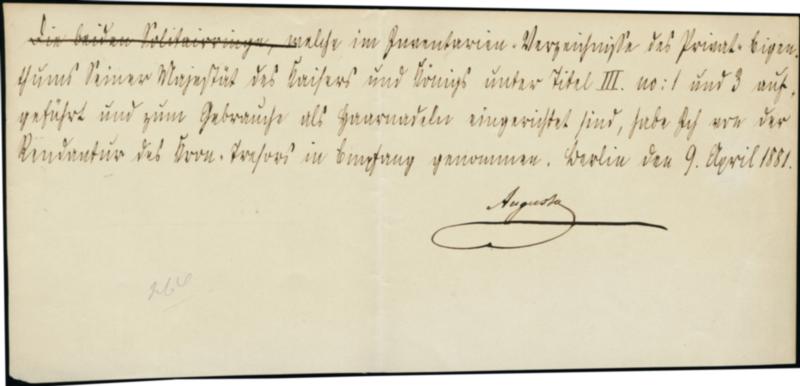 Die beiden Solitairringe, welche im Inventarien-Verzeichnisse des Privat-Eigen-
thums Seiner Majestät des Kaisers und Königs unter Titel III. no: 1 und 3 auf-
geführt und zum Gebrauche als Haarnadeln eingerichtet sind, habe Ich von der
Rendantur des Kron-Tresors in Empfang genommen. Berlin den 9. April 1881.
Augusta
264